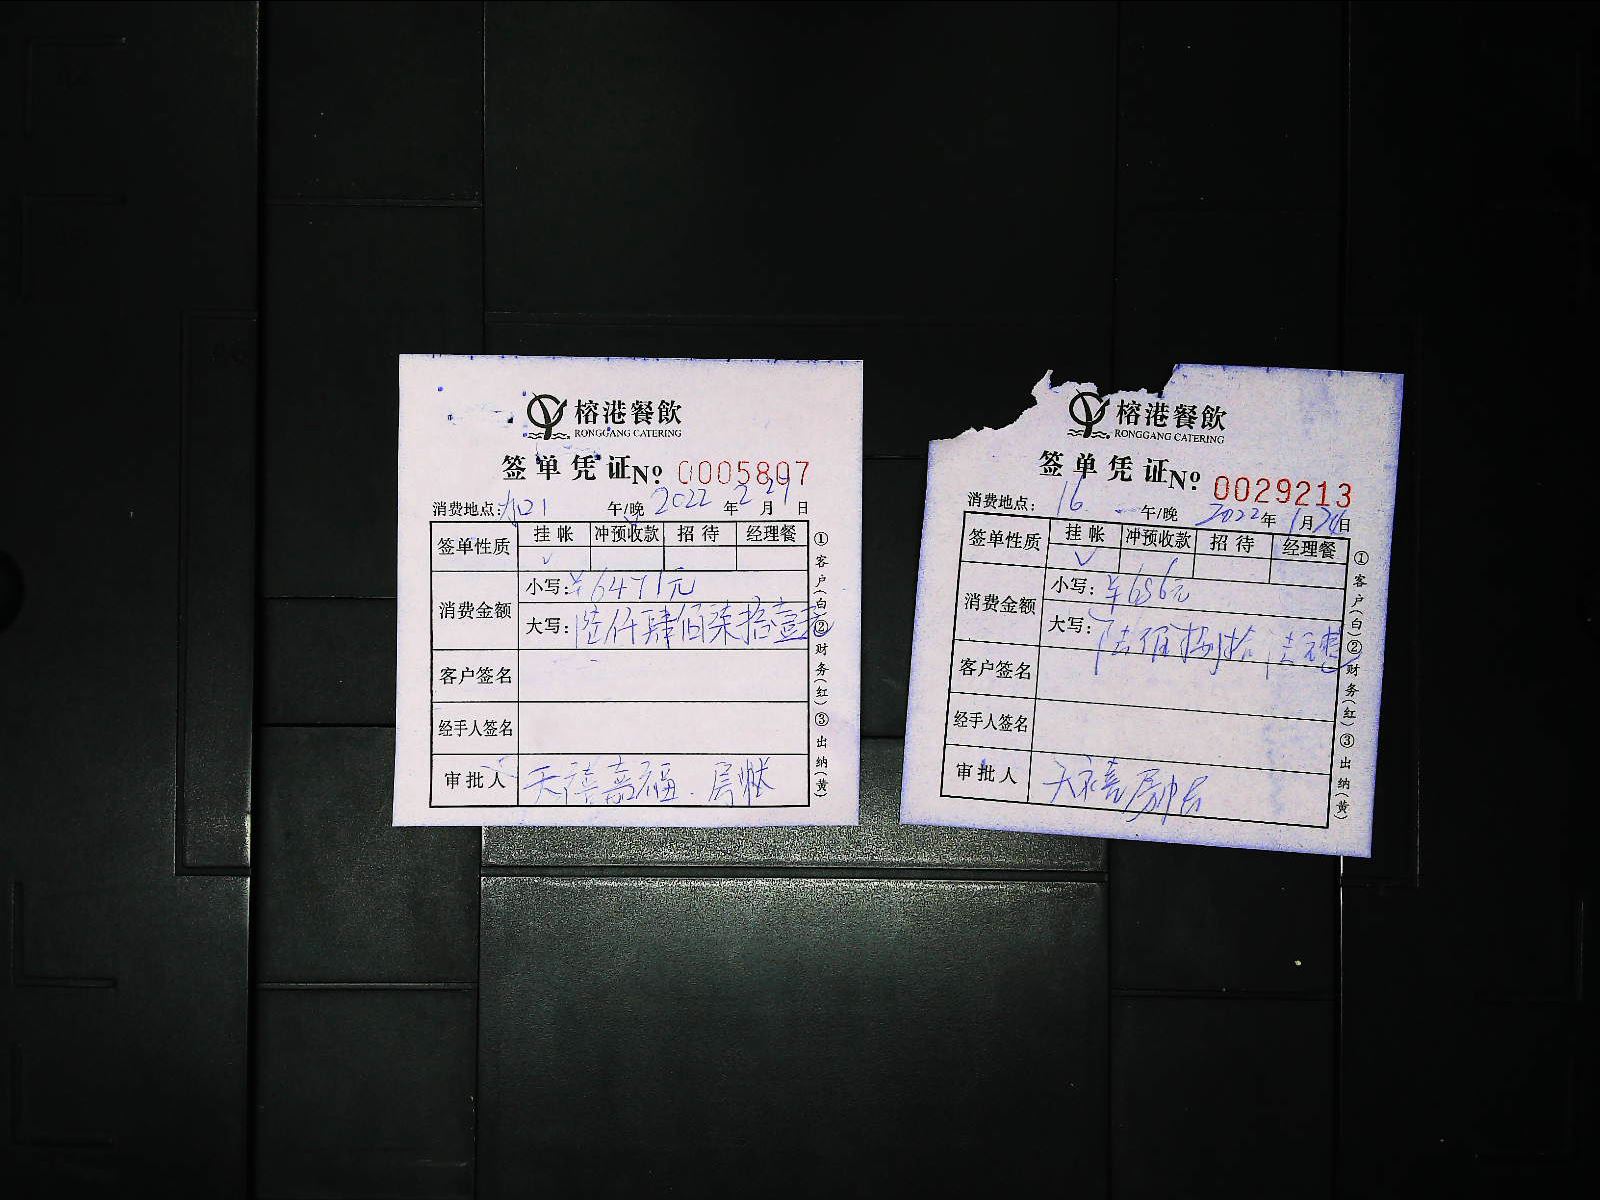 榕港餐飲
RONGGANG CATERING
签单凭证 № 0005807
消费地点: 午/晚 2022年2月 日
签单性质 挂帐 冲预收款 招待 经理餐
√
消费金额 小写: ¥6471元
大写: 陆仟肆佰柒拾壹元
客户签名
经手人签名
审批人 天禧嘉福.房
①客户(白)②财务(红)③出纳(黄)
榕港餐飲
RONGGANG CATERING
签单凭证 № 0029213
消费地点: 16 午/晚 2022年1月24日
签单性质 挂帐 冲预收款 招待 经理餐
√
消费金额 小写: ¥686元
大写: 陆佰捌拾陆元整
客户签名
经手人签名
审批人 天禧房
①客户(白)②财务(红)③出纳(黄)